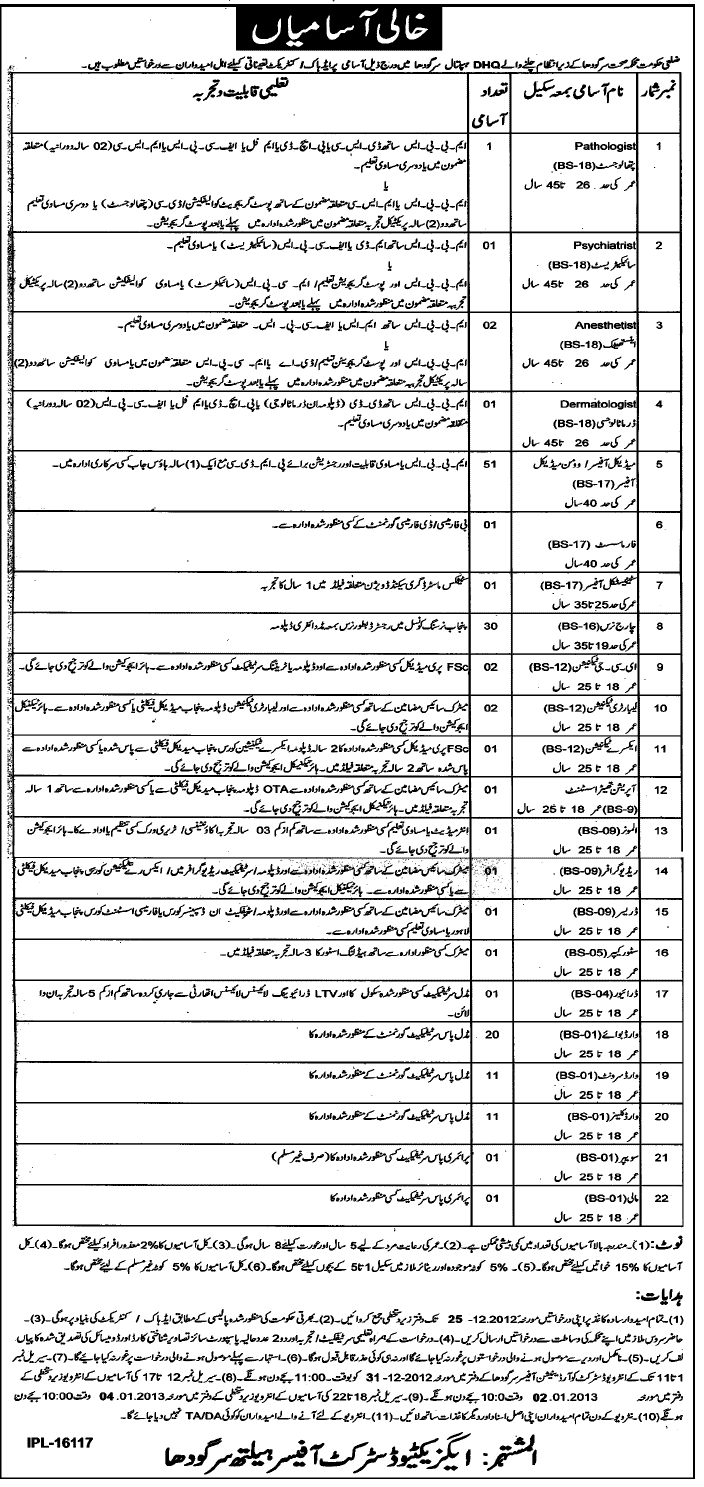 خالی آسامیاں
ضلعی حکومت محکمہ صحت سرگودھا کے زیر انتظام چلنے والے DHQ ہسپتال سرگودھا میں درج ذیل آسامی پر ایڈہاک/کنٹریکٹ تعیناتی کیلئے اہل امیدواران سے درخواستیں مطلوب ہیں۔
نمبر شمار نام آسامی بمعہ سکیل تعداد آسامی تعلیمی قابلیت و تجربہ
1 Pathologist پتھالوجسٹ (BS-18) عمر کی حد 26 تا 45 سال 1 ایم۔بی۔بی۔ایس ساتھ ڈی۔ایس۔سی یا پی۔ایچ۔ڈی یا ایم فل یا ایف۔سی۔پی۔ایس یا ایم۔ایس۔سی (02 سالہ دورانیہ) متعلقہ
مضمون میں یا دوسری مساوی تعلیم۔
یا
ایم۔بی۔بی۔ایس یا ایم۔ایس۔سی متعلقہ مضمون کے ساتھ پوسٹ گریجویٹ کوالیفکیشن/ڈی۔سی۔(پتھالوجسٹ) یا دوسری مساوی تعلیم
ساتھ دو (2) سالہ پریکٹیکل تجربہ متعلقہ مضمون میں منظور شدہ ادارہ میں پہلے یا بعد پوسٹ گریجویشن۔
2 Psychiatrist سائیکٹریسٹ (BS-18) عمر کی حد 26 تا 45 سال 01 ایم۔بی۔بی۔ایس ساتھ ایم۔ڈی یا ایف۔سی۔پی۔ایس (سائیکٹریسٹ) یا مساوی تعلیم۔
یا
ایم۔بی۔بی۔ایس اور پوسٹ گریجویشن تعلیم/ایم۔سی۔پی۔ایس (سائیکٹرسٹ) یا مساوی کوالیفکیشن ساتھ دو (2) سالہ پریکٹیکل
تجربہ متعلقہ مضمون میں منظور شدہ ادارہ میں پہلے یا بعد پوسٹ گریجویشن۔
3 Anesthetist (BS-18) عمر کی حد 26 تا 45 سال 02 ایم۔بی۔بی۔ایس ساتھ ایم۔ایس یا ایف۔سی۔پی۔ایس۔ متعلقہ مضمون میں یا دوسری مساوی تعلیم۔
یا
ایم۔بی۔بی۔ایس اور پوسٹ گریجویشن تعلیم/ڈی۔اے یا ایم۔سی۔پی۔ایس متعلقہ مضمون میں یا مساوی کوالیفکیشن ساتھ دو (2)
سالہ پریکٹیکل تجربہ متعلقہ مضمون میں منظور شدہ ادارہ میں پہلے یا بعد پوسٹ گریجویشن۔
4 Dermatologist ڈرماٹالوجسی (BS-18) عمر کی حد 26 تا 45 سال 01 ایم۔بی۔بی۔ایس ساتھ ڈی۔ڈی (ڈپلومہ ان ڈرماٹالوجی) یا پی۔ایچ۔ڈی یا ایم فل یا ایف۔سی۔پی۔ایس (02 سالہ دورانیہ)
متعلقہ مضمون میں یا دوسری مساوی تعلیم۔
5 میڈیکل آفیسر/وومن میڈیکل آفیسر (BS-17) عمر کی حد 40 سال 51 ایم۔بی۔بی۔ایس یا مساوی قابلیت اور رجسٹریشن برائے پی۔ایم۔ڈی۔سی مع ایک (1) سالہ ہاؤس جاب کسی سرکاری ادارہ میں۔
6 فارماسسٹ (BS-17) عمر کی حد 40 سال 01 بی فارمیسی/ڈی فارمیسی گورنمنٹ کے کسی منظور شدہ ادارہ سے۔
7 سٹیٹسٹیکل آفیسر (BS-17) عمر کی حد 25 تا 35 سال 01 سٹیٹکس ماسٹر ڈگری سیکنڈ ڈویژن متعلقہ فیلڈ میں 1 سال کا تجربہ
8 چارج نرس (BS-16) عمر کی حد 19 تا 35 سال 30 پنجاب نرسنگ کونسل میں رجسٹرڈ بطور نرس بمعہ مڈوائفری ڈپلومہ
9 ای۔سی۔جی ٹیکنیشن (BS-12) عمر 18 تا 25 سال 02 FSc پری میڈیکل کسی منظور شدہ ادارہ سے اور ڈپلومہ یا ٹریننگ سرٹیفکیٹ کسی منظور شدہ ادارہ سے۔ ہائر ایجوکیشن والے کو ترجیح دی جائے گی۔
10 لیبارٹری ٹیکنیشن (BS-12) عمر 18 تا 25 سال 02 میٹرک سائیس مضامین کے ساتھ کسی منظور شدہ ادارہ سے اور لیبارٹری ٹیکنیشن ڈپلومہ پنجاب میڈیکل فیکلٹی یا کسی منظور شدہ ادارہ سے۔ ہائر ٹیکنیکل
ایجوکیشن والے کو ترجیح دی جائے گی۔
11 ایکسرے ٹیکنیشن (BS-12) عمر 18 تا 25 سال 01 FSc پری میڈیکل کسی منظور شدہ ادارہ کا 2 سالہ ڈپلومہ ایکسرے ٹیکنیشن کورس پنجاب میڈیکل فیکلٹی سے پاس شدہ یا کسی منظور شدہ ادارہ سے
پاس شدہ ساتھ 2 سالہ تجربہ متعلقہ فیلڈ میں۔ ہائر ٹیکنیکل ایجوکیشن والے کو ترجیح دی جائے گی۔
12 آپریشن تھیٹر اسسٹنٹ (BS-9) عمر 18 تا 25 سال 01 میٹرک سائیس مضامین کے ساتھ کسی منظور شدہ ادارہ سے اور OTA ڈپلومہ پنجاب میڈیکل فیکلٹی سے یا کسی منظور شدہ ادارہ سے ساتھ 1 سالہ
تجربہ متعلقہ فیلڈ میں۔ ہائر ٹیکنیکل ایجوکیشن والے کو ترجیح دی جائے گی۔
13 المونر (BS-09) عمر 18 تا 25 سال 01 انٹرمیڈیٹ یا مساوی تعلیم کسی منظور شدہ ادارہ سے ساتھ کم از کم 03 سالہ تجربہ کسی تنظیم یا ادارے کا۔ ہائر ایجوکیشن
والے کو ترجیح دی جائے گی۔
14 ریڈیوگرافر (BS-09) عمر 18 تا 25 سال 01 میٹرک سائیس مضامین کے ساتھ کسی منظور شدہ ادارہ سے اور ڈپلومہ/سرٹیفکیٹ ریڈیوگرافر میں/ایکس رے ٹیکنیکیشن کورس پنجاب میڈیکل فیکلٹی
سے یا کسی منظور شدہ ادارہ سے۔ ہائر ٹیکنیکل ایجوکیشن والے کو ترجیح دی جائے گی۔
15 ڈریسر (BS-09) عمر 18 تا 25 سال 01 میٹرک سائیس مضامین کے ساتھ کسی منظور شدہ ادارہ سے اور ڈپلومہ/سرٹیفکیٹ ان ڈسپنسر کورس یا فارمیسی اسسٹنٹ کورس پنجاب میڈیکل فیکلٹی
لاہور یا مساوی تعلیم کسی منظور شدہ ادارہ سے۔
16 سٹور کیپر (BS-05) عمر 18 تا 25 سال 01 میٹرک کسی منظور ادارہ سے ساتھ ہیڈلنگ اسٹور کا 3 سالہ تجربہ متعلقہ فیلڈ میں۔
17 ڈرائیور (BS-04) عمر 18 تا 25 سال 01 مڈل سرٹیفکیٹ کسی منظور شدہ سکول کا اور LTV ڈرائیونگ لائیسنس لائیسنس اتھارٹی سے جاری کردہ ساتھ کم از کم 5 سالہ تجربہ ان دا
لائن۔
18 وارڈ بوائے (BS-01) عمر 18 تا 25 سال 20 مڈل پاس سرٹیفکیٹ گورنمنٹ کے منظور شدہ ادارہ کا
19 وارڈ سرونٹ (BS-01) عمر 18 تا 25 سال 11 مڈل پاس سرٹیفکیٹ گورنمنٹ کے منظور شدہ ادارہ کا
20 وارڈ کلینر (BS-01) عمر 18 تا 25 سال 11 مڈل پاس سرٹیفکیٹ گورنمنٹ کے منظور شدہ ادارہ کا
21 سویپر (BS-01) عمر 18 تا 25 سال 01 پرائمری پاس سرٹیفکیٹ کسی منظور شدہ ادارہ کا (صرف غیر مسلم)
22 مالی (BS-01) عمر 18 تا 25 سال 01 پرائمری پاس سرٹیفکیٹ کسی منظور شدہ ادارہ کا
نوٹ: (1)۔ مندرجہ بالا آسامیوں کی تعداد میں کمی بیشی ممکن ہے۔ (2)۔ عمر کی رعایت مرد کے لیے 5 سال اور عورت کیلئے 8 سال ہوگی۔ (3)۔ کل آسامیوں کا 2% معذور افراد کیلئے مختص ہوگا۔ (4)۔ کل
آسامیوں کا 15% خواتین کیلئے مختص ہوگا۔ (5)۔ 5% کوٹہ موجودہ اور ریٹائر ملازمین سکیل 1 تا 5 کے بچوں کیلئے مختص ہوگا۔ (6)۔ کل آسامیوں کا 5% کوٹہ غیر مسلم کے لیے مختص ہوگا۔
ہدایات:
(1)۔ تمام امیدوار سادہ کاغذ پر اپنی درخواستیں مورخہ 25-12-2012 تک دفتر زیر دستخطی جمع کروائیں۔ (2)۔ بھرتی حکومت کی منظور شدہ پالیسی کے مطابق ایڈہاک/کنٹریکٹ کی بنیاد پر ہوگی۔ (3)۔
حاضر سروس ملازمین اپنے محکمہ کی وساطت سے درخواستیں ارسال کریں۔ (4)۔ درخواست کے ہمراہ تعلیمی سرٹیفکیٹ/تجربہ اور 2 عدد حالیہ پاسپورٹ سائز تصاویر شناختی کارڈ اور ڈومیسائل کی تصدیق شدہ کاپیاں
لف کریں۔ (5)۔ نامکمل اور دیر سے موصول ہونے والی درخواستوں پر غور نہ کیا جائے گا اور نہ ہی کوئی عذر قابل قبول ہوگا۔ (6)۔ اشتہار سے پہلے موصول ہونے والی درخواست پر غور نہ کیا جائے گا۔ (7)۔ سیریل نمبر
1 تا 11 تک کے انٹرویو ڈسٹرکٹ کوآرڈینیشن آفیسر سرگودھا کے دفتر میں مورخہ 31-12-2012 کو بوقت 11:00 بجے دن ہونگے۔ (8)۔ سیریل نمبر 12 تا 17 کی آسامیوں کے انٹرویو زیر دستخطی کے
دفتر میں مورخہ 02.01.2013 وقت 10:0 بجے دن ہونگے۔ (9)۔ سیریل نمبر 18 تا 22 کی آسامیوں کے انٹرویو زیر دستخطی کے دفتر میں مورخہ 04.01.2013 وقت 10:00 بجے دن
ہونگے (10)۔ انٹرویو کے دن تمام امیدواران اپنی اصل اسناد اور دیگر کاغذات ساتھ لائیں۔ (11)۔ انٹرویو کے لئے آنے والے امیدواران کو کوئی TA/DA نہیں دیا جائے گا۔
المشتہر: ایگزیکٹیو ڈسٹرکٹ آفیسر ہیلتھ سرگودھا
IPL-16117